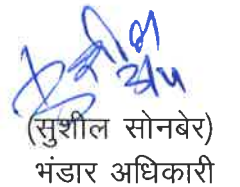 (सुशील सोनबेर)
भंडार अधिकारी